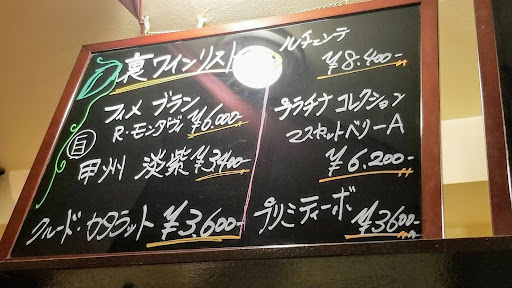 裏ワインリスト
フィメ ブラン
R.モンダヴィ ¥6.000-
白
甲州 淡紫 ¥3400-
クルード・カタラット ¥3.600-
ルチェンテ
¥8.400-
プラチナ コレクション
マスカットベリーA
¥6.200-
プリミティーボ ¥3600-